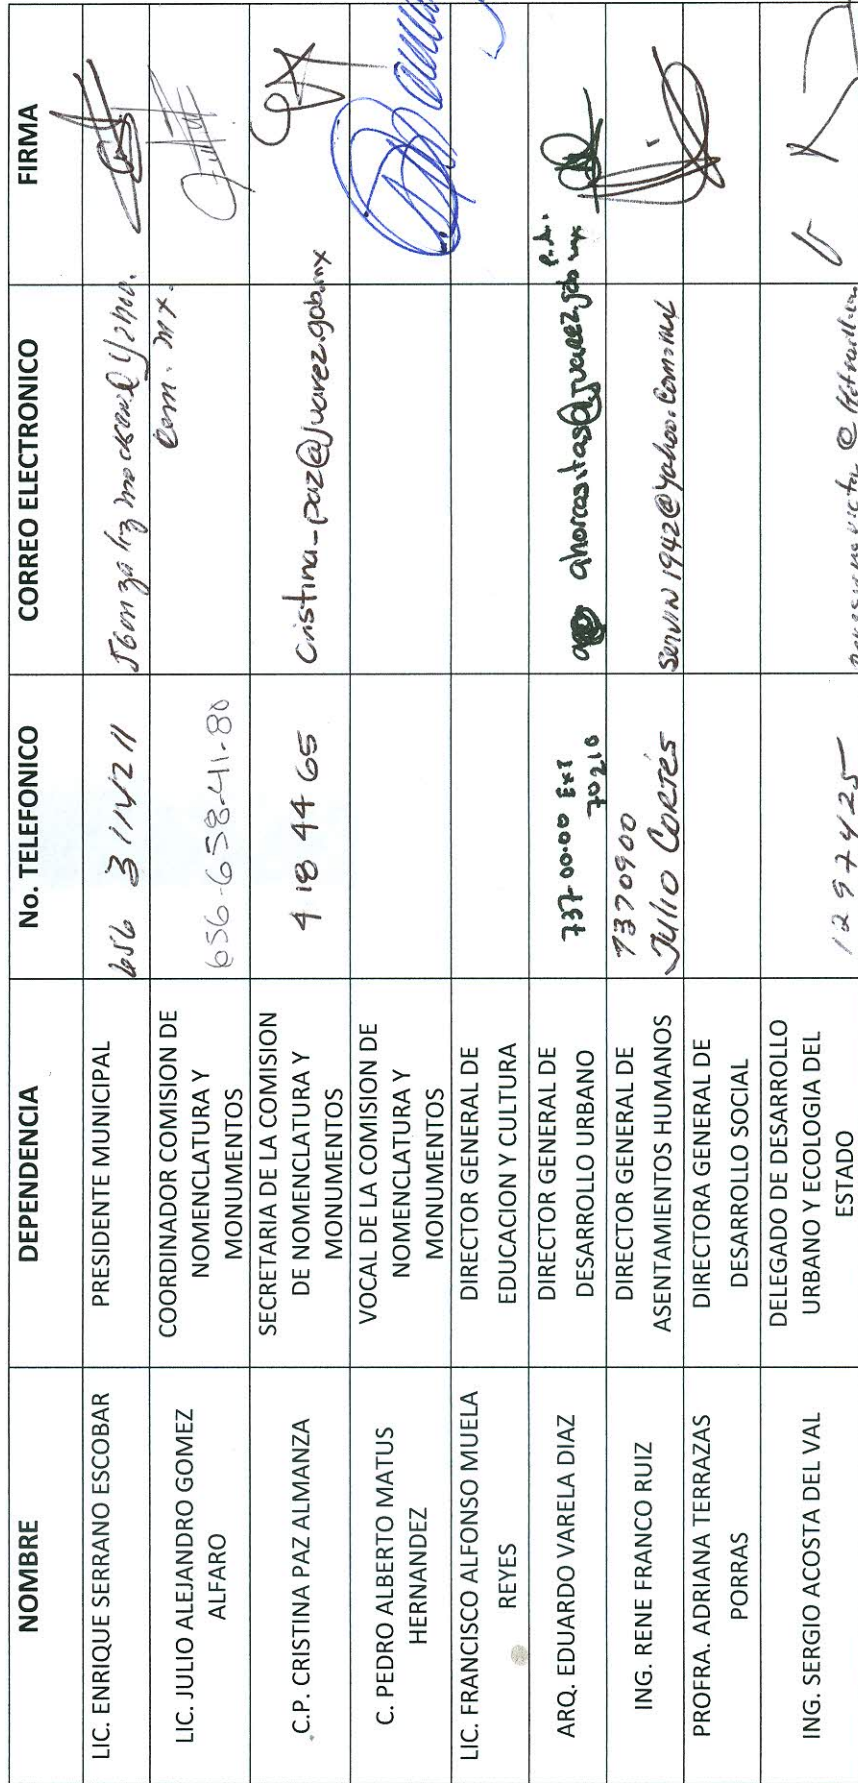 NOMBRE DEPENDENCIA No. TELEFONICO CORREO ELECTRONICO FIRMA
LIC. ENRIQUE SERRANO ESCOBAR PRESIDENTE MUNICIPAL 656 3114211
LIC. JULIO ALEJANDRO GOMEZ
ALFARO
COORDINADOR COMISION DE
NOMENCLATURA Y
MONUMENTOS
656-658-41-80
com.mx.
C.P. CRISTINA PAZ ALMANZA
SECRETARIA DE LA COMISION
DE NOMENCLATURA Y
MONUMENTOS
4 18 44 65
cristina-paz@juarez.gob.mx
C. PEDRO ALBERTO MATUS
HERNANDEZ
VOCAL DE LA COMISION DE
NOMENCLATURA Y
MONUMENTOS
LIC. FRANCISCO ALFONSO MUELA
REYES
DIRECTOR GENERAL DE
EDUCACION Y CULTURA
ARQ. EDUARDO VARELA DIAZ
DIRECTOR GENERAL DE
DESARROLLO URBANO
737-00-00 EXT
70210
ahorcasitas@juarez.gob.mx
ING. RENE FRANCO RUIZ
DIRECTOR GENERAL DE
ASENTAMIENTOS HUMANOS
7370900
Julio CORTES
servin1942@yahoo.com.mx
PROFRA. ADRIANA TERRAZAS
PORRAS
DIRECTORA GENERAL DE
DESARROLLO SOCIAL
ING. SERGIO ACOSTA DEL VAL
DELEGADO DE DESARROLLO
URBANO Y ECOLOGIA DEL
ESTADO
1297425